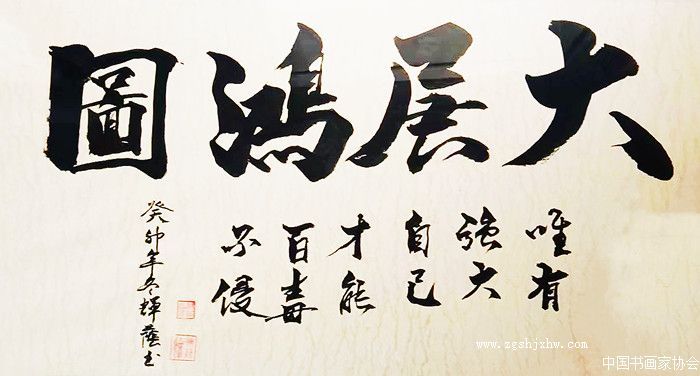 大展鴻圖
唯有
強大
自己
才能
百毒
不侵
癸卯年冬輝蔭书
www.zgshjzhw.com
中国书画家协会